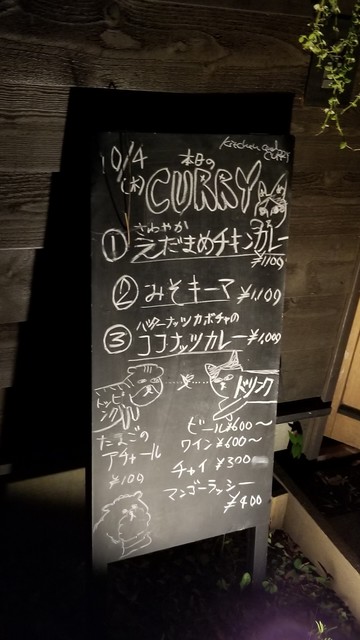 kitchen and CURRY
10/4
(木)
本日の
CURRY
① さわやか
えだまめチキンカレー
¥1,100
② みそキーマ ¥1,100
③ バターナッツカボチャの
ココナッツカレー ¥1,000
トッピング
たまごの
アチャール
¥100
ドリンク
ビール¥600〜
ワイン¥600〜
チャイ ¥300
マンゴーラッシー
¥400